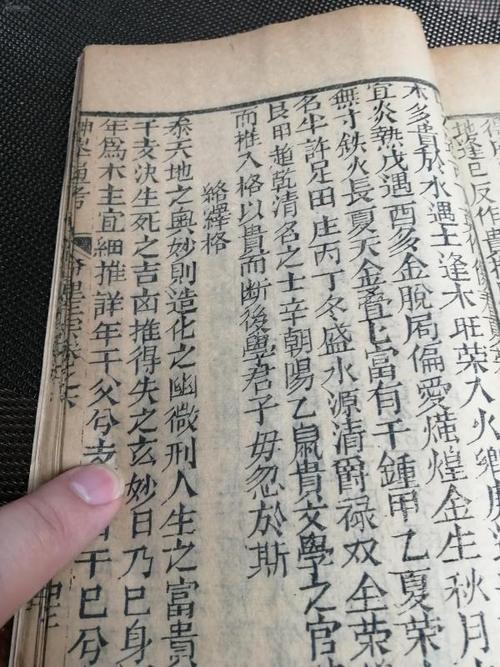 木多貴於水遇土逢木旺榮入火鄉
宜炎熱戊遇酉多金脫局偏愛熾煌金生秋月
無寸鐵火長夏天金疊富有千鍾甲乙夏榮
名半許足田庄丙丁冬盛水源清爵祿双全榮
艮甲趨乾清名之士辛朝陽乙鼠貴文學之官
而推入格以貴而斷後學君子毋忽於斯
絡繹格
天地之奧妙則造化之幽微刑人生之富貴
干支決生死之吉凶推得失之玄妙日乃巳身
年為木主宜細推詳年干父兮支干巳兮